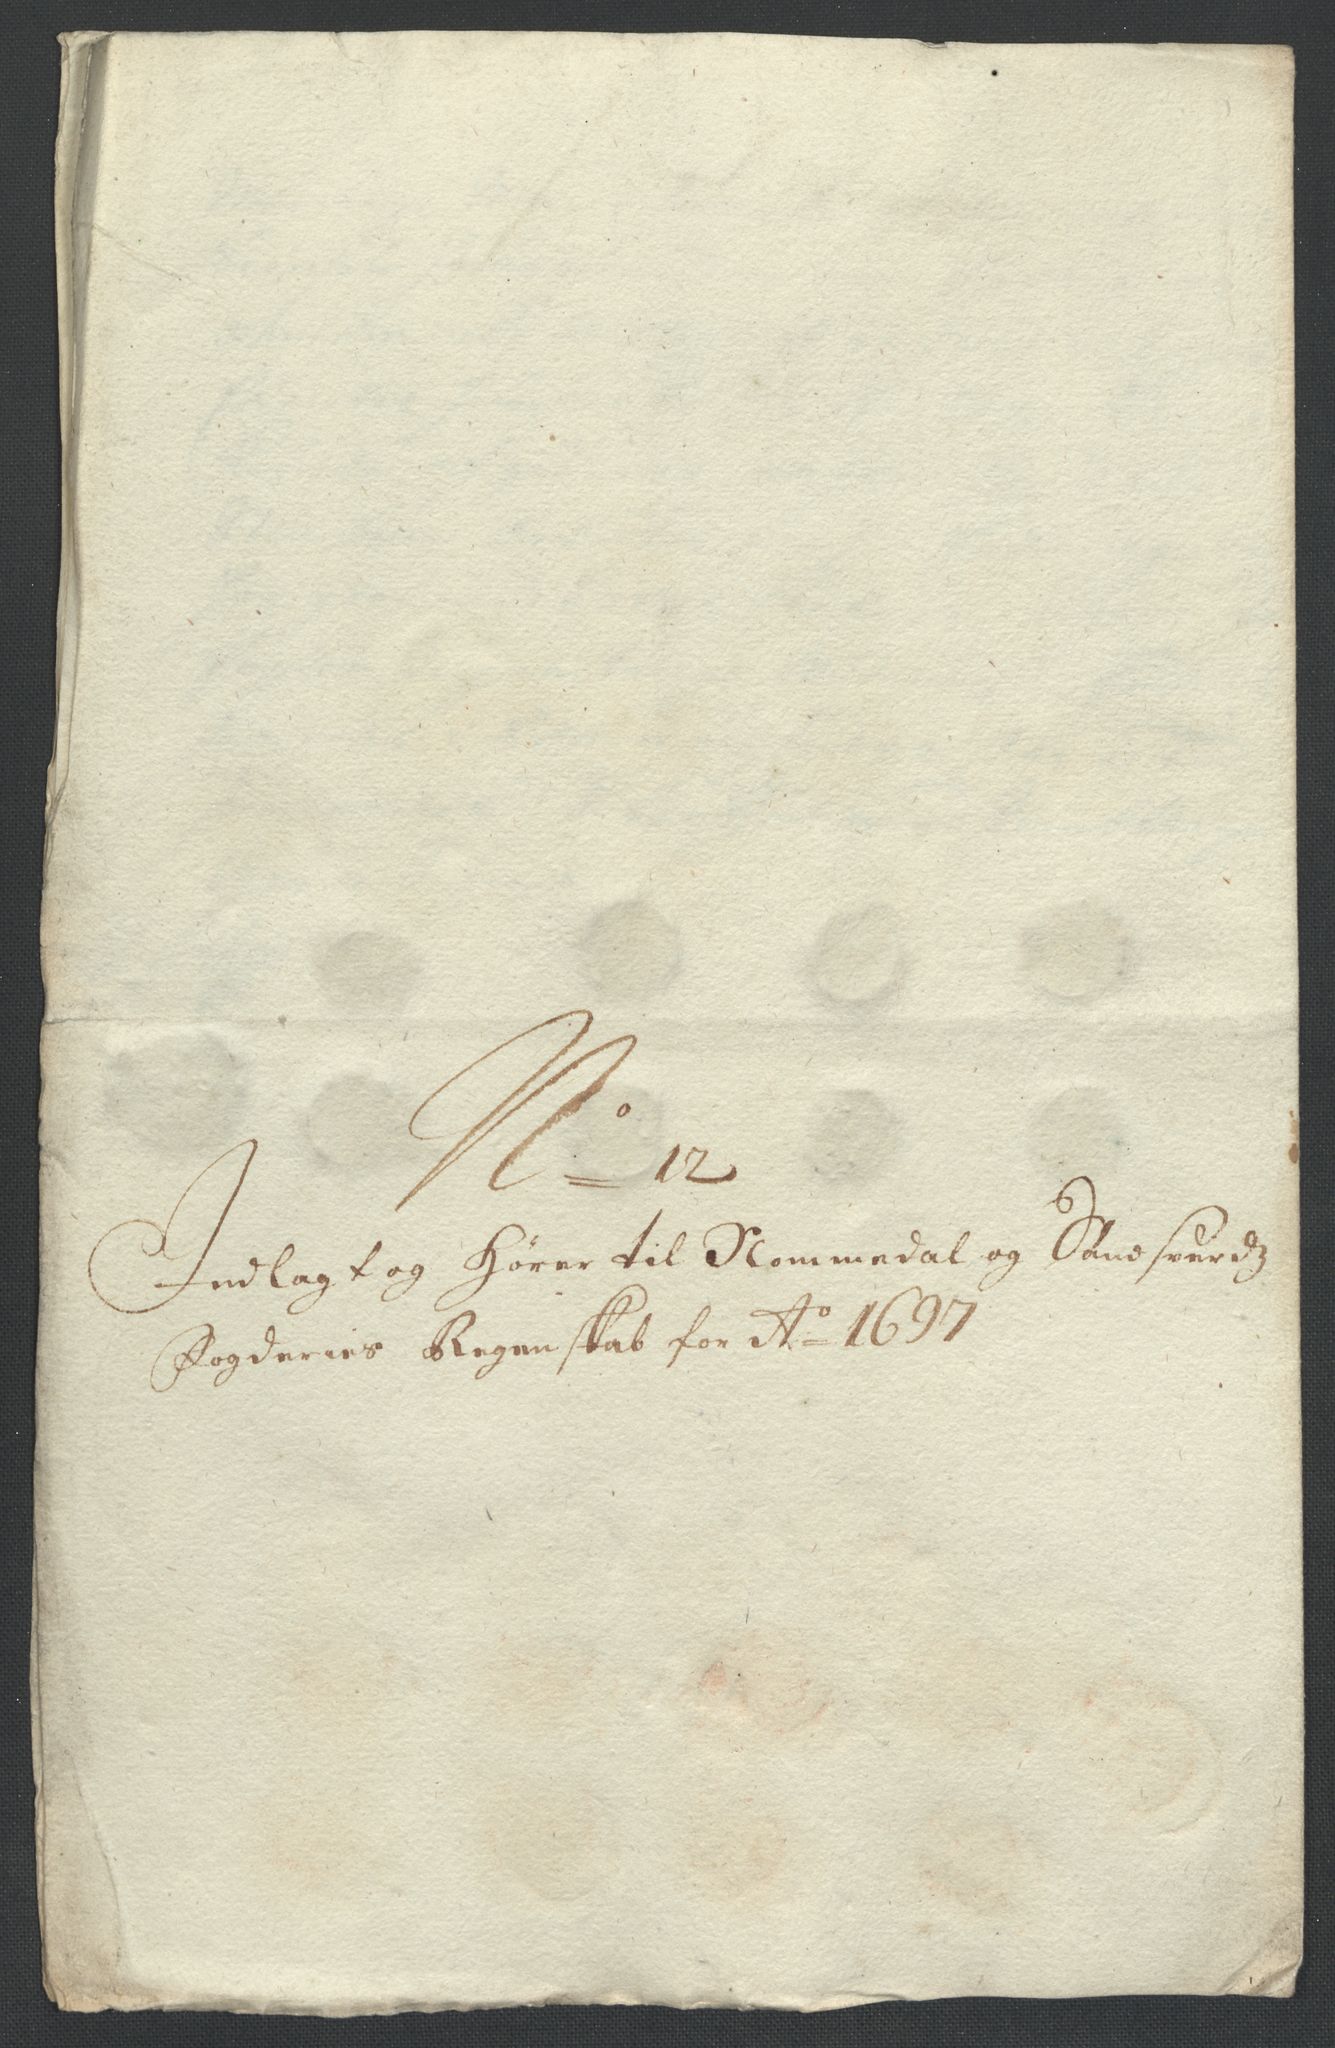 No 12
Indlagt og hører til Nommedal og Sandsverds
Fogderies Regenskab for Ao 1697